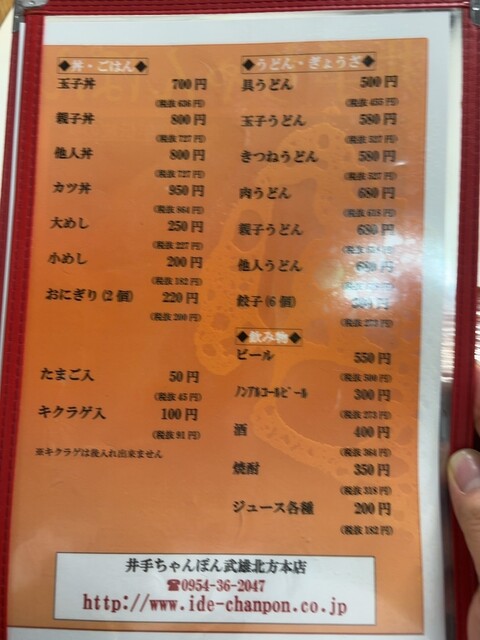 ◆丼・ごはん◆
玉子丼 700円
(税抜 636 円)
親子丼 800円
(税抜 727 円)
他人丼 800円
(税抜 727 円)
カツ丼 950円
(税抜 864 円)
大めし 250円
(税抜 227 円)
小めし 200円
(税抜 182 円)
おにぎり(2個) 220円
(税抜 200 円)
たまご入 50円
(税抜 45 円)
キクラゲ入 100円
(税抜 91 円)
※キクラゲは後入れ出来ません
◆うどん・ぎょうざ◆
具うどん 500円
(税抜 455 円)
玉子うどん 580円
(税抜 527 円)
きつねうどん 580円
(税抜 527 円)
肉うどん 680円
(税抜 618 円)
親子うどん 680円
他人うどん 680円
餃子(6個)
(税抜 273 円)
◆飲み物◆
ビール 550円
(税抜 500 円)
ノンアルコールビール 300円
(税抜 273 円)
酒 400円
(税抜 364 円)
焼酎 350円
(税抜 318 円)
ジュース各種 200円
(税抜 182 円)
井手ちゃんぽん武雄北方本店
☎0954-36-2047
http://www.ide-chanpon.co.jp